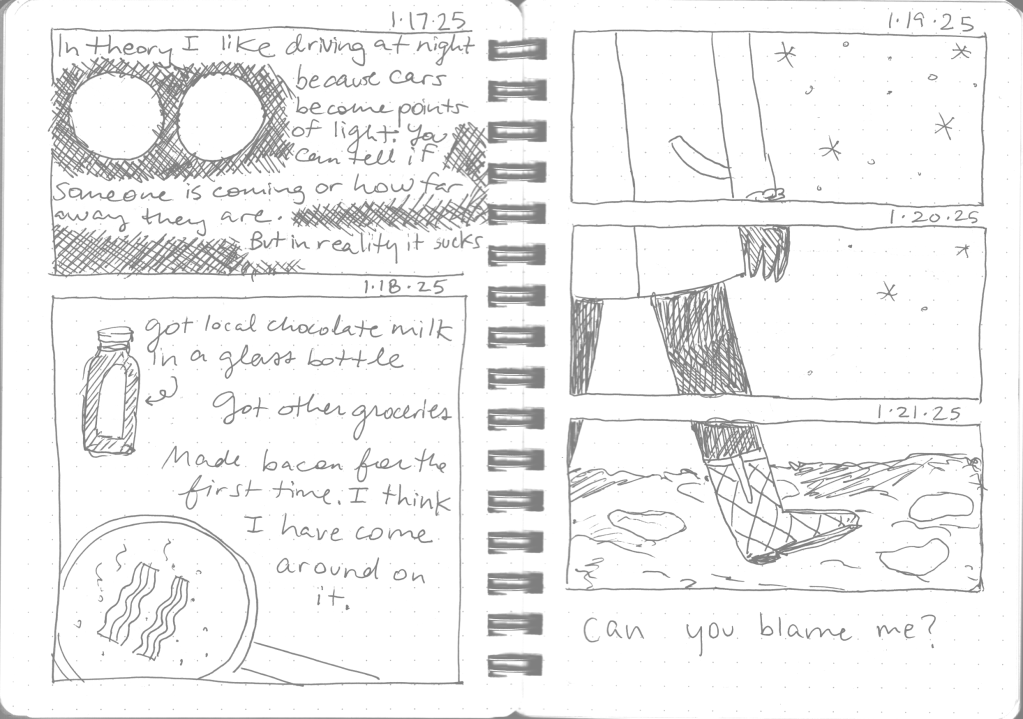 1.17.25
In theory I like driving at night
because cars
become points
of light. You
can tell if
someone is coming or how far
away they are.
But in reality it sucks
1.18.25
got local chocolate milk
in a glass bottle
got other groceries
Made bacon for the
first time. I think
I have come
around on
it.
1.19.25
1.20.25
1.21.25
Can you blame me?